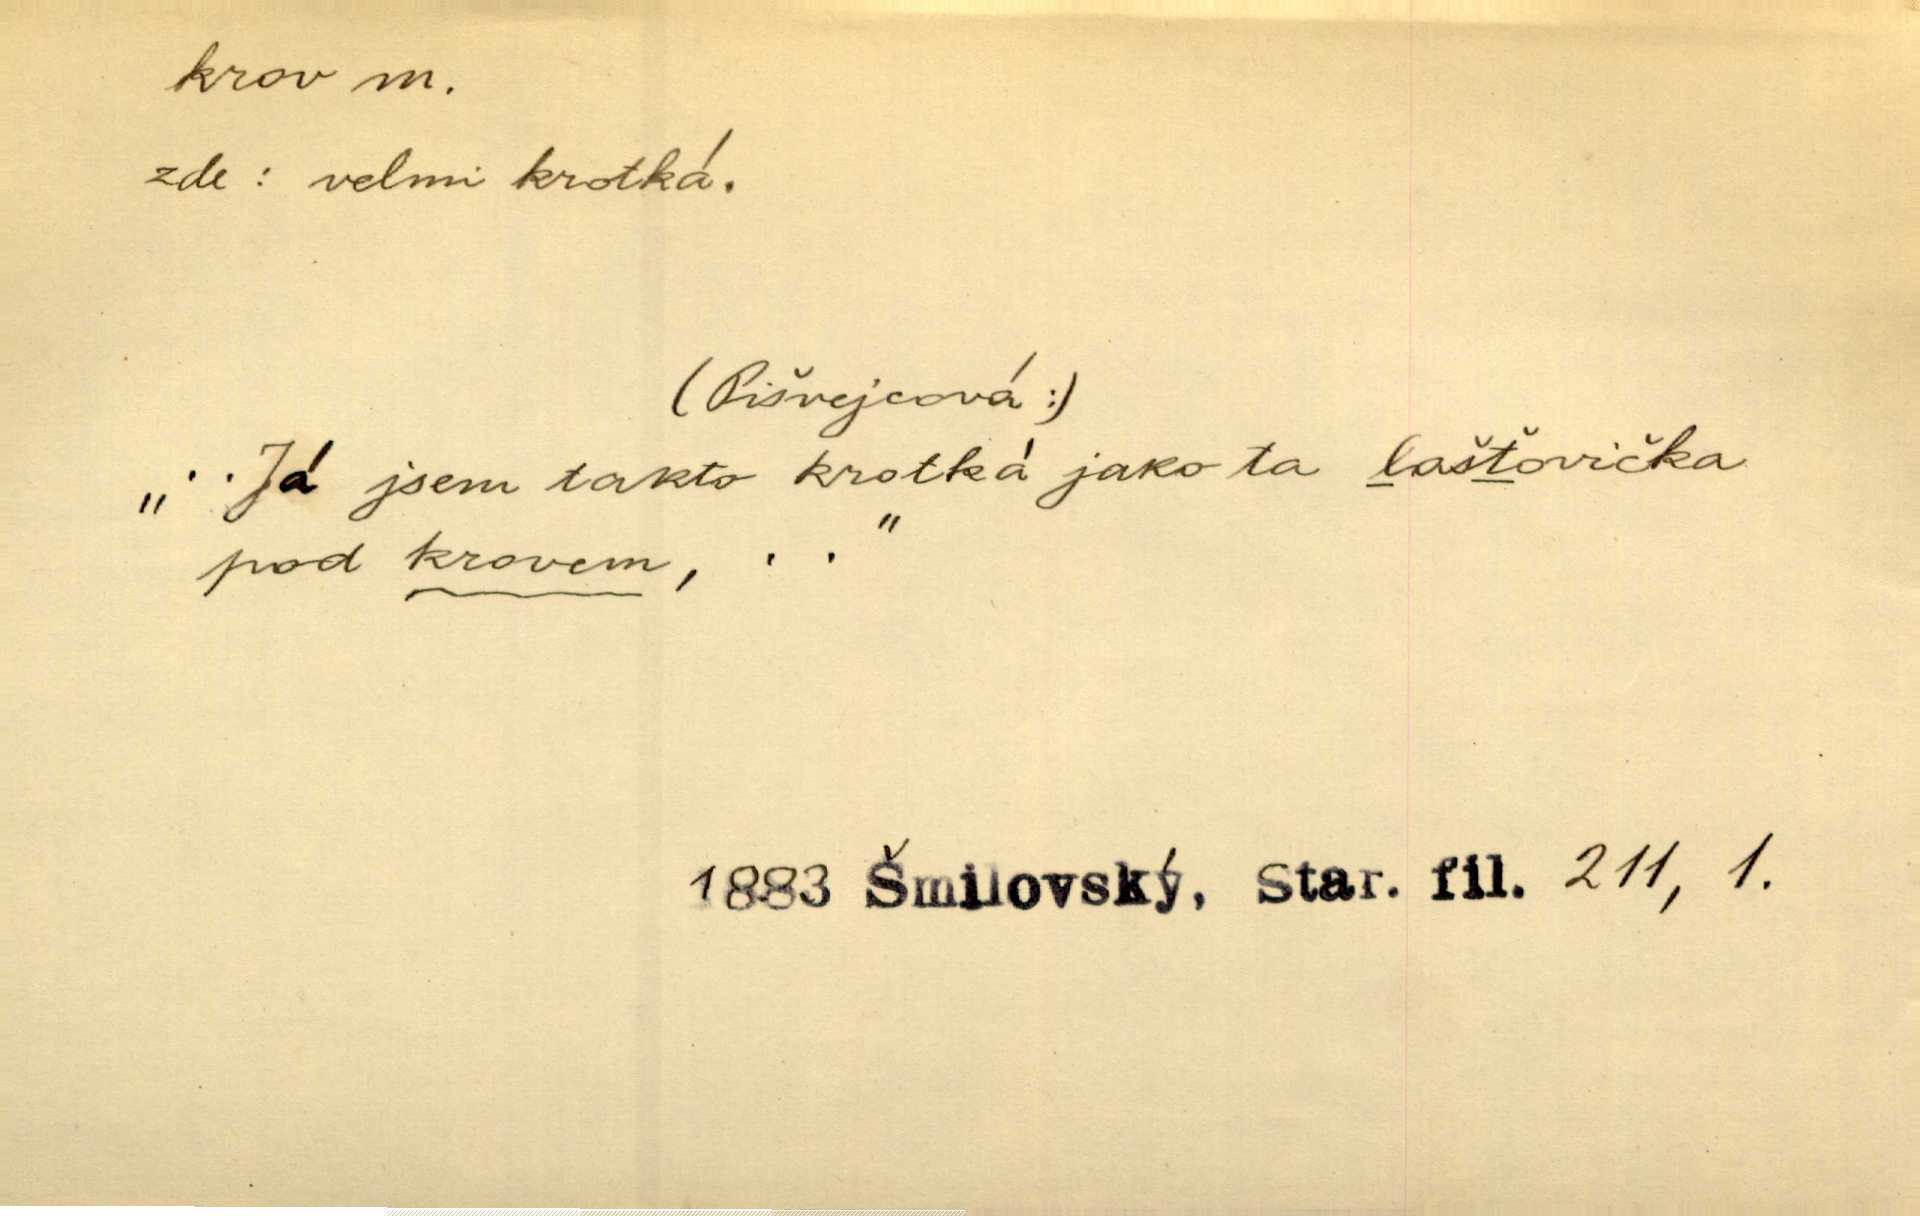 krov m.
zde : velmi krotká.
(Pišvejcová :)
„ . . Já jsem takto krotká jako ta laštovička
pod krovem, . . "
1883 Šmilovský, Star. fil. 211, 1.